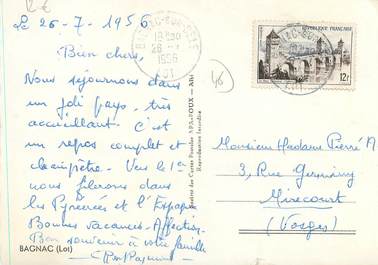 Le 26-7-1956
Bien chers,
Nous séjournons dans
un joli pays, très
accueillant. C'est
un repos complet et
champêtre. Vers le 1er
nous filerons dans
les Pyrénées et l'Espagne
Bonnes vacances. Affection.
Bon souvenir à votre famille
BAGNAC (Lot)
BAGNAC-SUR-CELE
18H30
26-7
1956
LOT
APA-POUX - Albi
Reproduction Interdite
46
RÉPUBLIQUE FRANÇAISE
12F
Monsieur Madame Pierre
3, Rue Germiny
Mirecourt
(Vosges)